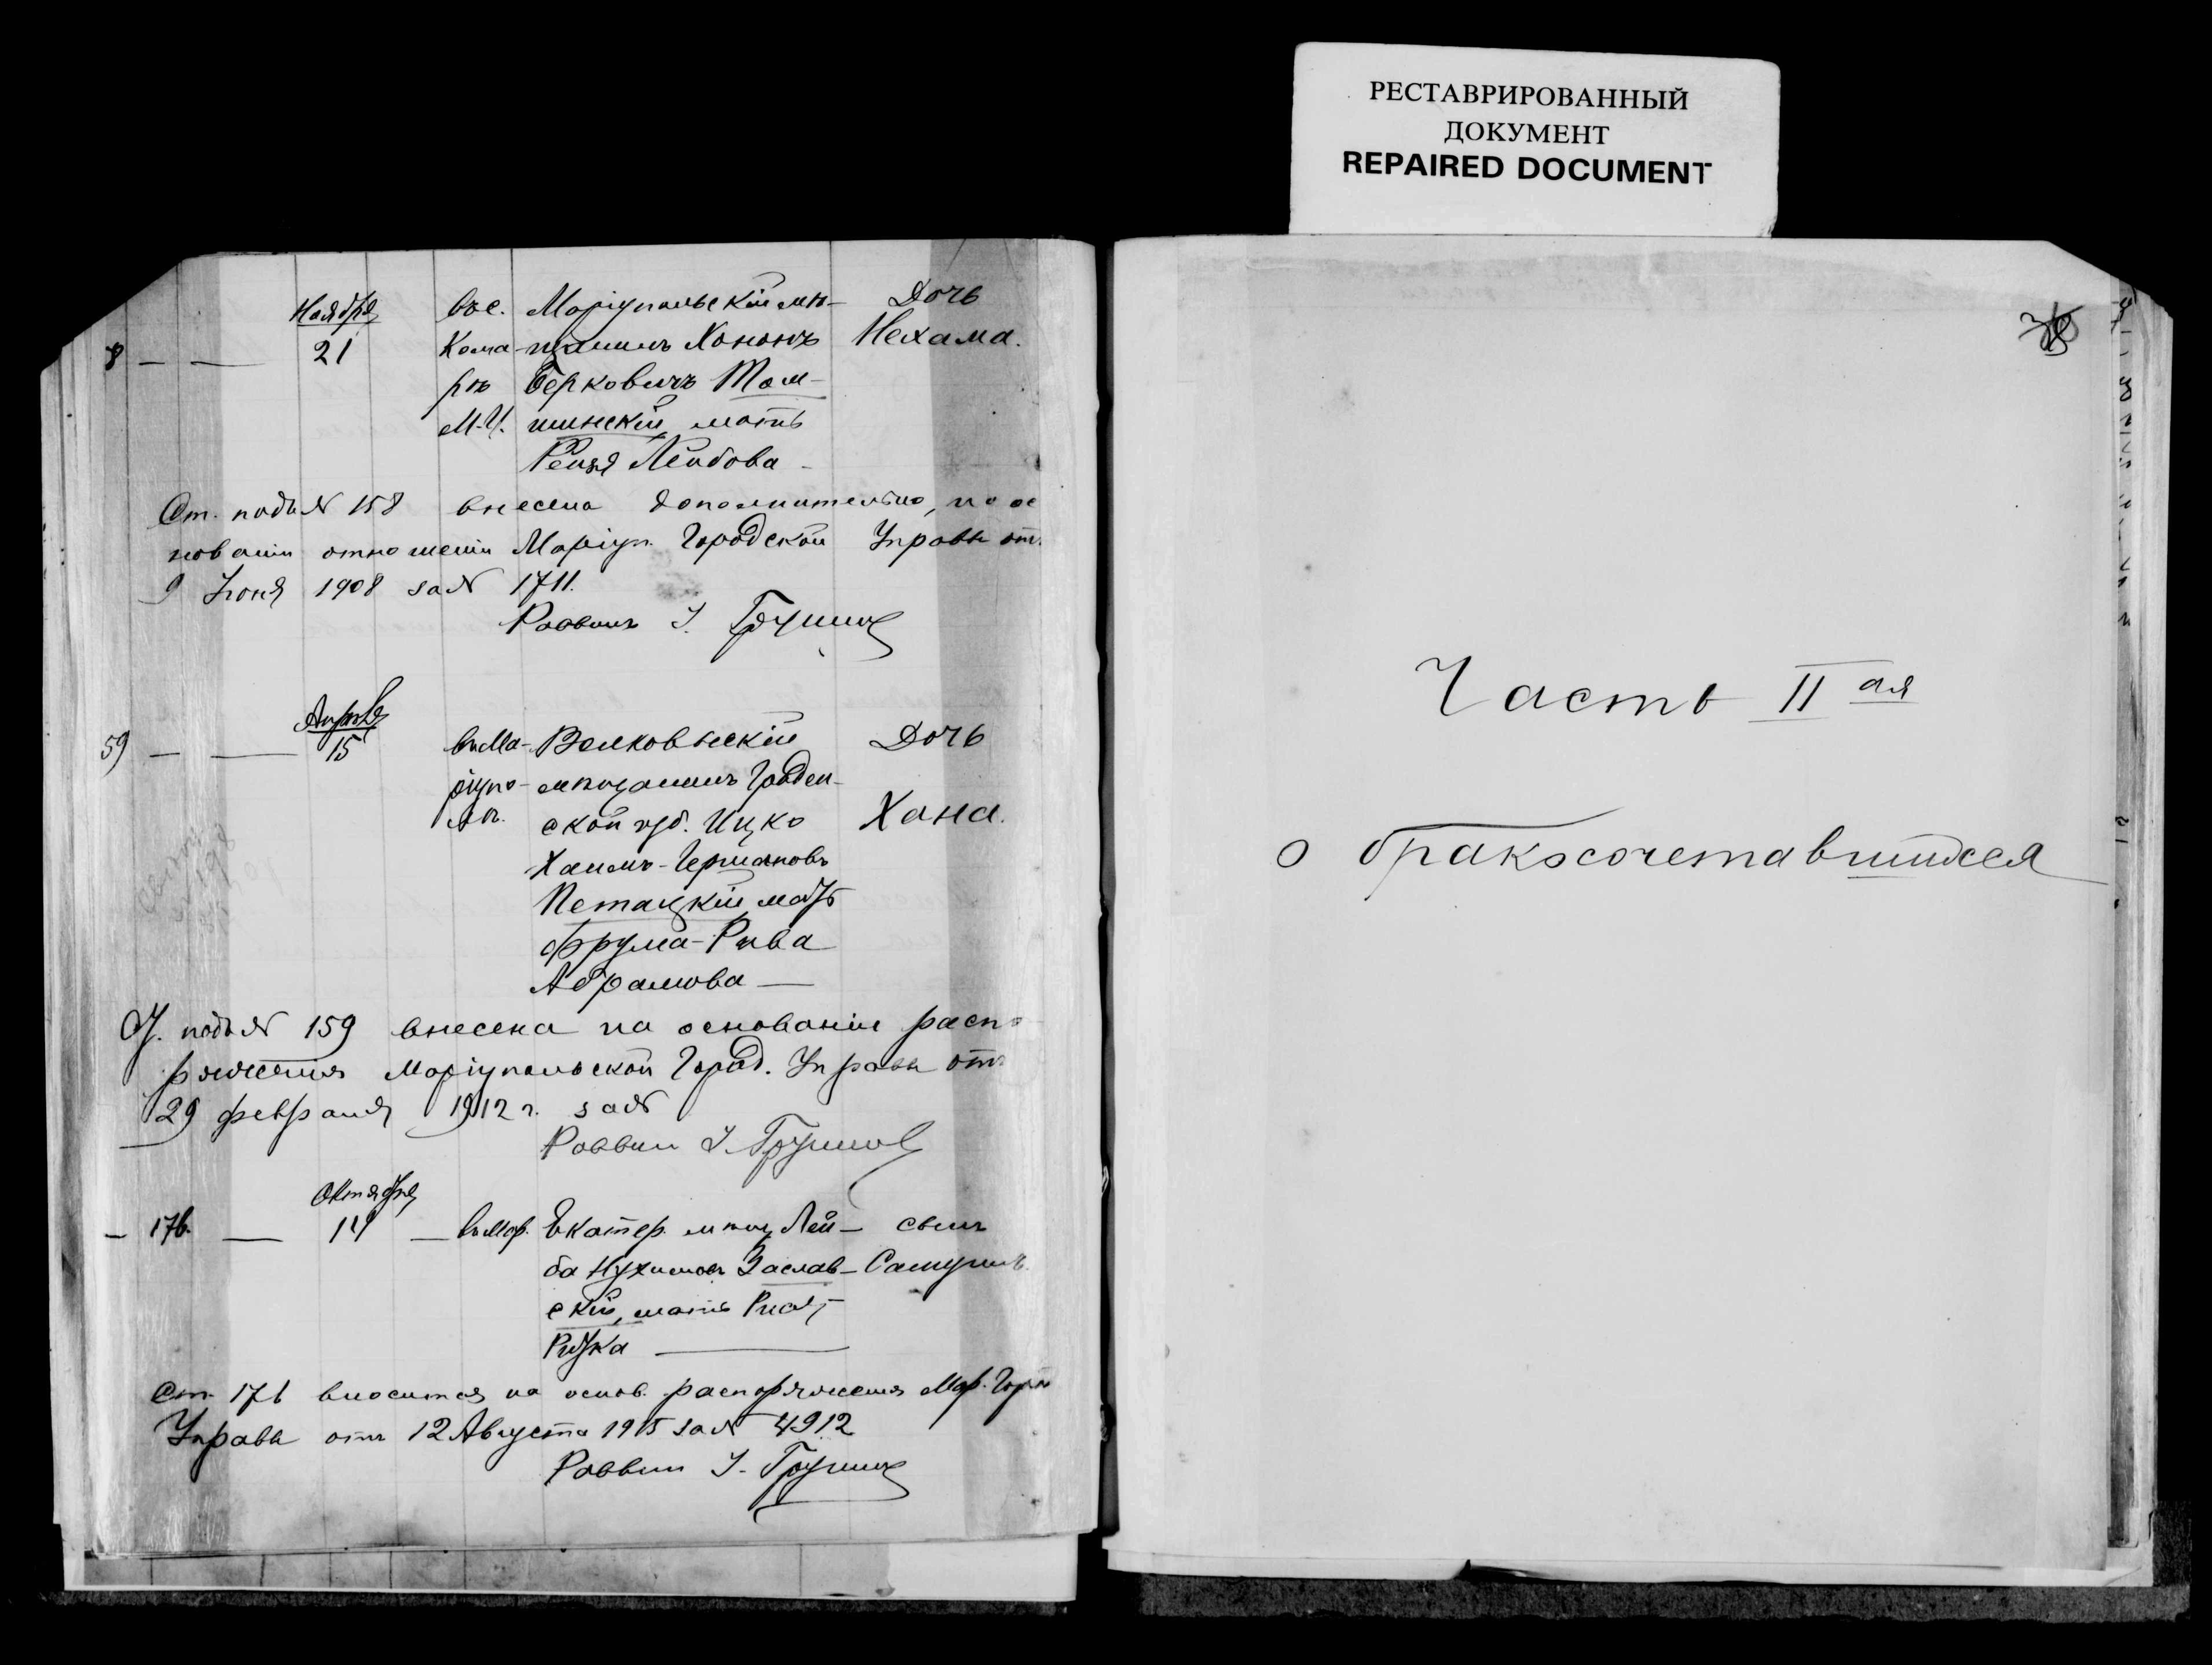 РЕСТАВРИРОВАННЫЙ
ДОКУМЕНТ
REPAIRED DOCUMENT
Ноября
8 — — 21
въ с. Кома-
рѣ
М. У.
Маріупольскій мѣ-
щанинъ Хононъ
Берковичъ Том-
шинскій, мать
Рейзя Лейбова
Дочь
Нехама.
Ст. подъ № 158 внесена дополнительно, на ос
нованіи отношенія Маріуп. Городской Управы отъ
9 Іюня 1908 за № 1711.
Раввинъ
Апрѣля
59 — — 15
въ Ма-
ріупо-
лѣ.
Волковыскій
мѣщанинъ Гроднен-
ской губ. Ицко
Хаимъ-Гершановъ
Петацкій мать
Фрума-Рива
Абрамова —
Дочь
Хана.
Ст. подъ № 159 внесена на основаніи распо
ряженія Маріупольской Город. Управы отъ
29 февраля 1912 г. за №
Раввин
Октября
— 176. — 14 — въ Мар.
Екатер. мѣщ Лей-
ба Нухимов Заслав-
скій, мать
сынъ
Самуилъ.
Ст. 176 вносится на основ. распоряженія Мар. Горо
Управы отъ 12 Августа 1915 за № 4912
Раввин
Часть II ая
о бракосочетавшихся